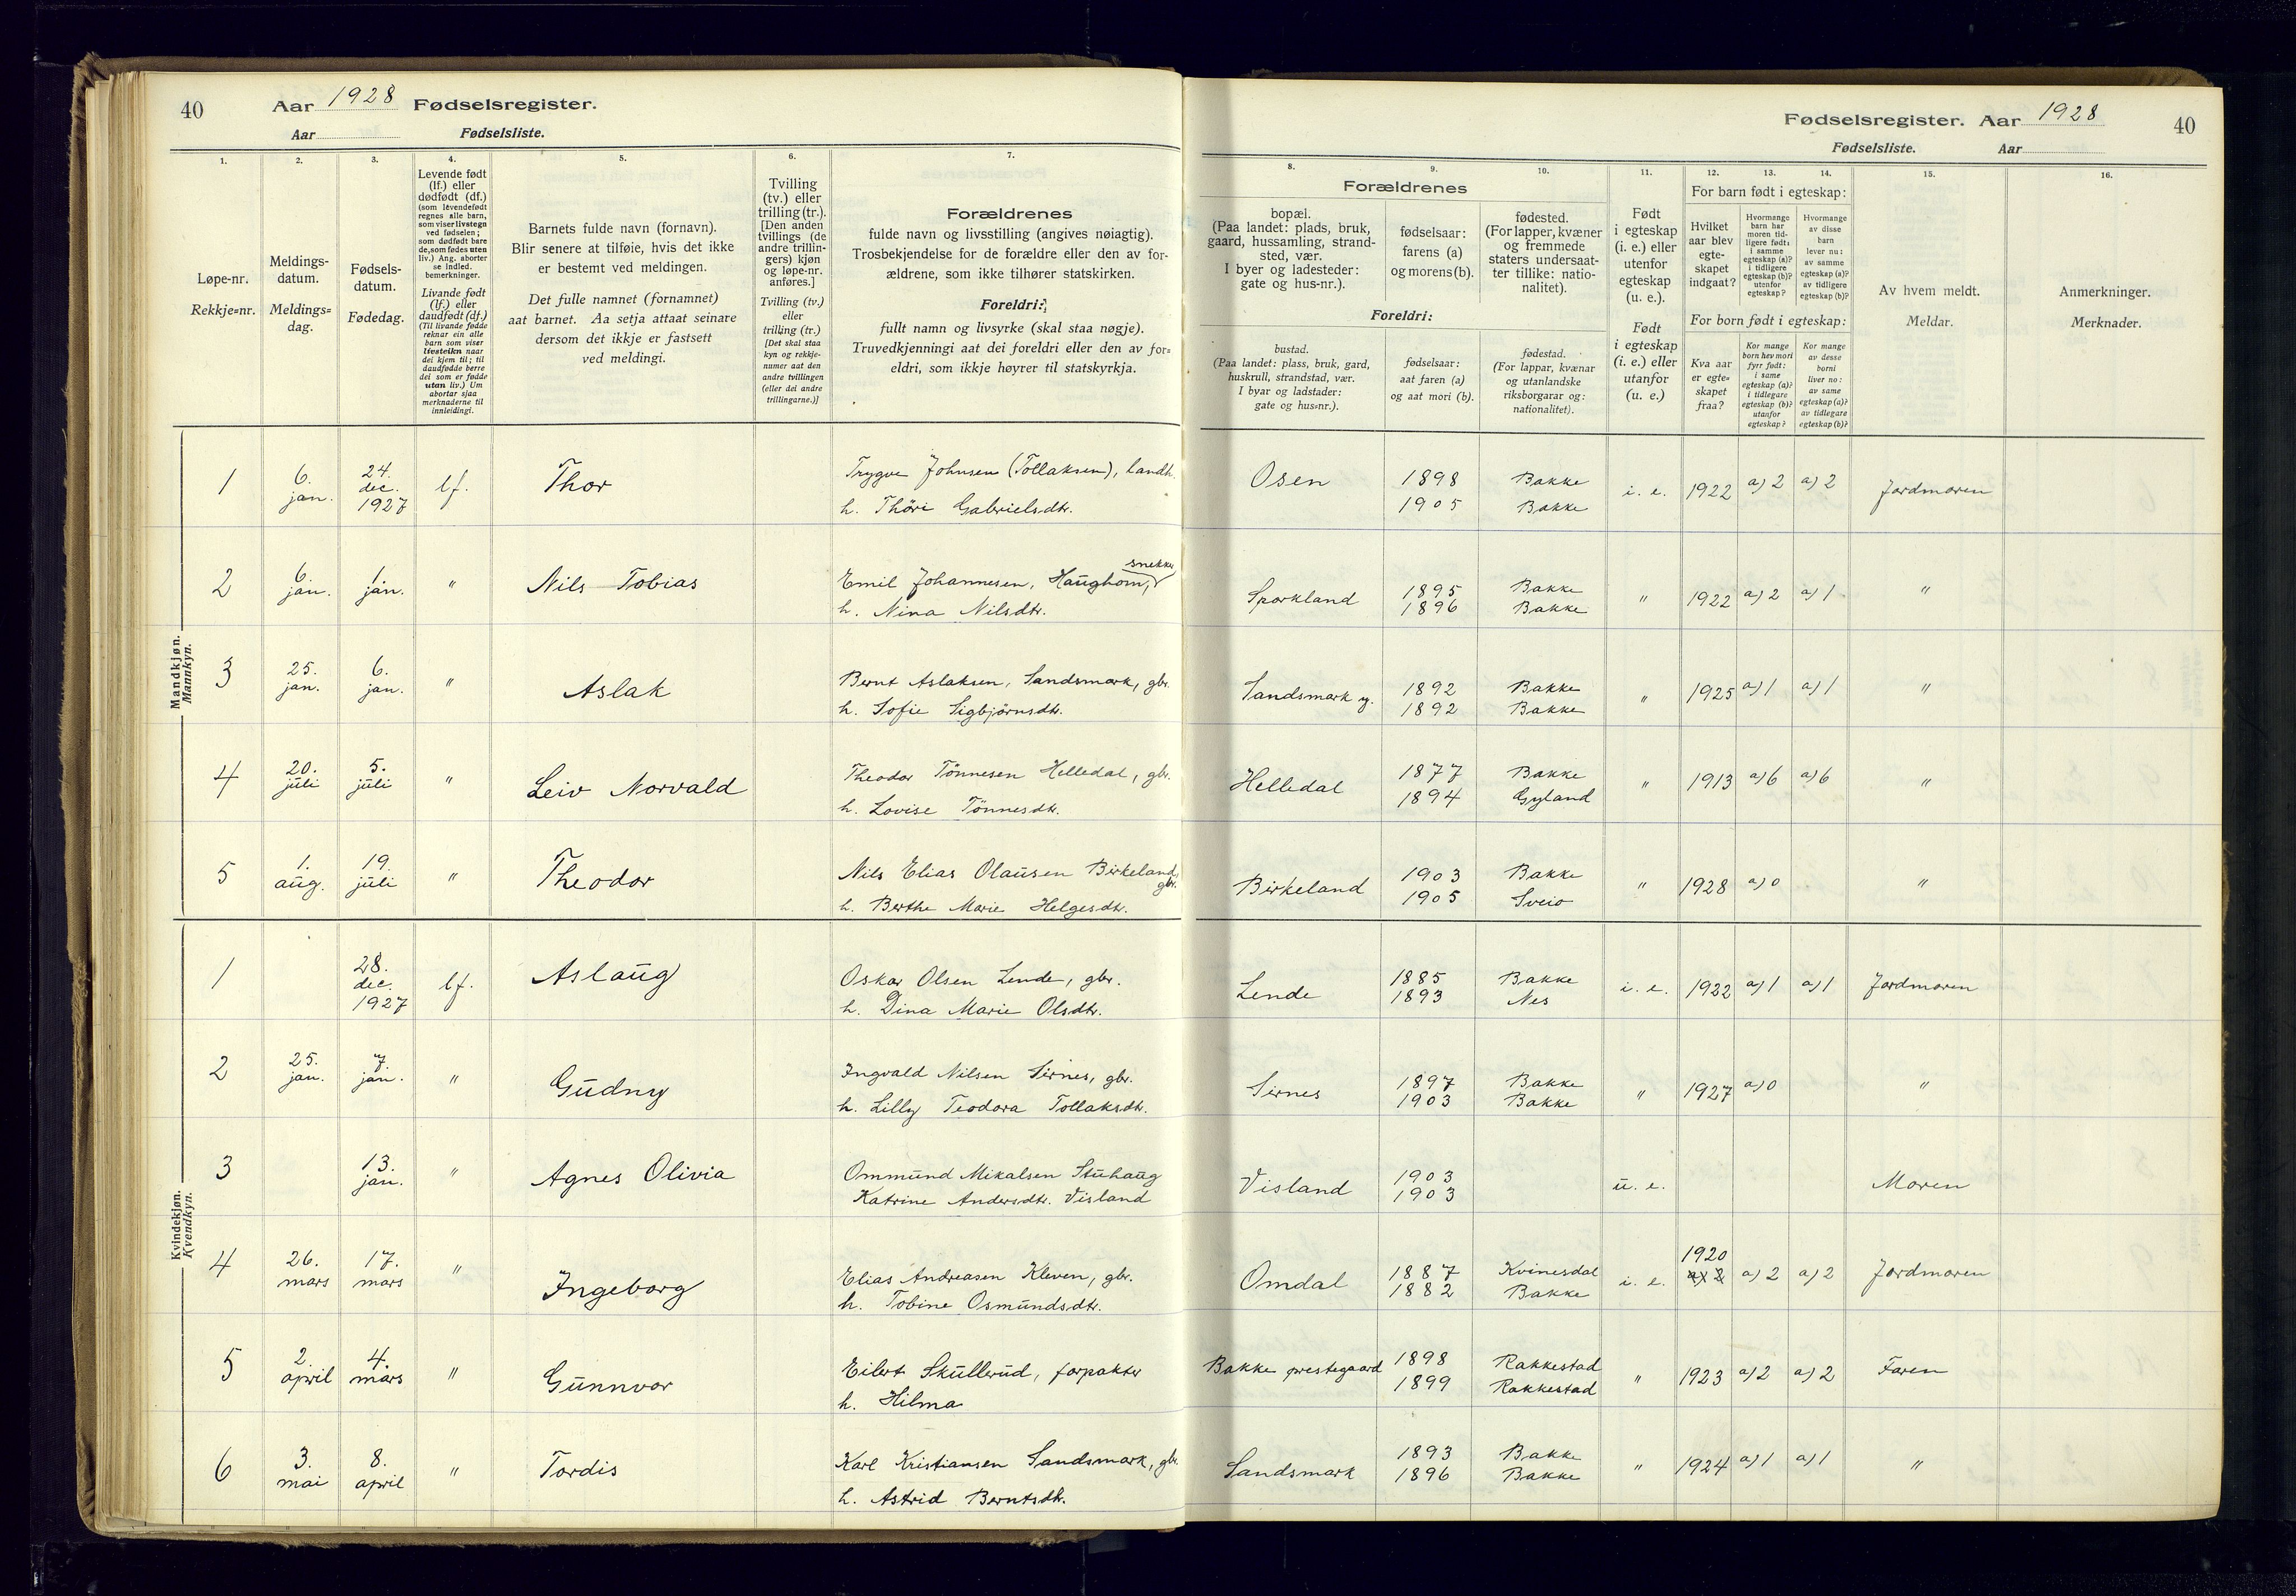 40 Aar 1928 Fødselsregister.
Aar Fødselsliste.
1.
2.
3.
4.
5.
6.
7.
Løpe-nr.
Rekkje=nr.
Meldings-
datum.
Meldings=
dag.
Fødsels-
datum.
Fødedag.
Levende født
(lf.) eller
dødfødt (df.)
(som levendefødt
regnes alle barn,
som viser livstegn
ved fødselen;
som dødfødt bare
de, som fødes uten
liv.) Ang. aborter
se indled.
bemerkninger.
Livande født
(lf.) eller
daudfødt (df.)
(Til livande fødde
reknar ein alle
barn som viser
livsteikn naar
dei kjem til; til
daudfødde berre
dei som er fødde
utan liv.) Um
abortar sjaa
merknaderne til
innleidingi.
Barnets fulde navn (fornavn).
Blir senere at tilføie, hvis det ikke
er bestemt ved meldingen.
Det fulle namnet (fornamnet)
aat barnet. Aa setja attaat seinare
dersom det ikkje er fastsett
ved meldingi.
Tvilling
(tv.) eller
trilling (tr.).
[Den anden
tvillings (de
andre trillin-
gers) kjøn
og løpe-nr.
anføres.]
Tvilling (tv.)
eller
trilling (tr.)
[Det skal staa
kyn og rekkje-
numer aat den
andre tvillingen
(eller dei andre
trillingarne.)]
Forældrenes
fulde navn og livsstilling (angives nøiagtig).
Trosbekjendelse for de forældre eller den av for-
ældrene, som ikke tilhører statskirken.
Foreldri:
fullt namn og livsyrke (skal staa nøgje).
Truvedkjenningi aat dei foreldri eller den av for=
eldri, som ikkje høyrer til statskyrkja.
Mandkjøn.
Mannkyn.
1 6. jan. 24. dec. 1927 lf. Thor Trygve Johnsen (Tollaksen), landh.
h. Thöri Gabrielsdtr.
2 6. jan. 1. jan. " Nils Tobias Emil Johannesen, Haughom, snekker
h. Nina Nilsdtr.
3 25. jan. 6. jan. " Aslak Bernt Aslaksen, Sandsmark, gbr.
h. Sofie Sigbjörnsdtr.
4 20. juli 5. juli " Leiv Norvald Theodor Tönnesen Helledal, gbr.
h. Lovise Tönnesdtr.
5 1. aug. 19. juli " Theodor Nils Elias Olausen Birkeland, gbr.
h. Berthe Marie Helgesdtr.
Kvindekjøn.
Kvendkyn.
1 28. dec. 1927 lf. Aslaug Oskar Olsen Lende, gbr.
h. Dina Marie Olsdtr.
2 25. jan. 7. jan. " Gudny Ingvald Nilsen Sirnes, gbr.
h. Lilly Teodora Tollaksdtr.
3 13. jan. " Agnes Olivia Ommund Mikalsen Stuhaug
Katrine Andersdtr. Visland
4 26. mars 17. mars " Ingeborg Elias Andreasen Kleven, gbr.
h. Tobine Osmundsdtr.
5 2. april 4. mars " Gunnvor Eilert Skullerud, forpakter
h. Hilma
6 3. mai 8. april " Tordis Karl Kristiansen Sandsmark, gbr.
h. Astrid Berntsdtr.
Fødselsregister. Aar 1928 40
Fødselsliste. Aar
8.
9.
10.
11.
12.
13.
14.
15.
16.
Forældrenes
bopæl.
(Paa landet: plads, bruk,
gaard, hussamling, strand-
sted, vær.
I byer og ladesteder:
gate og hus-nr.).
fødselsaar:
farens (a)
og morens (b).
fødested.
(For lapper, kvæner
og fremmede
staters undersaat-
ter tillike: natio-
nalitet).
Foreldri:
bustad.
(Paa landet: plass, bruk, gard,
huskrull, strandstad, vær.
I byar og ladstader:
gate og hus=nr.).
fødselsaar:
aat faren (a)
og aat mori (b).
fødestad.
(For lappar, kvænar
og utanlandske
riksborgarar og:
nationalitet).
Født
i egteskap
(i. e.) eller
utenfor
egteskap
(u. e.).
Født
i egteskap
(i. e.) eller
utanfor
(u. e.)
For barn født i egteskap:
Hvilket
aar blev
egte-
skapet
indgaat?
Hvormange
barn har
moren tid-
ligere født:
i samme
egteskap (a)?
i tidligere
egteskap (b)?
utenfor
egteskap?
Hvormange
av disse
barn
lever nu:
av samme
egteskap (a)?
av tidligere
egteskap (b)?
For born født i egteskap:
Kva aar
er egte=
skapet
fraa?
Kor mange
born hev mori
fyrr født:
i same
egteskap (a)?
i tidlegare
egteskap (b)?
utanfor
egteskap?
Kor mange
av desse
borni
liver no:
av same
egteskap (a)?
av tidlegare
egteskap (b)?
Av hvem meldt.
Meldar.
Anmerkninger.
Merknader.
Osen 1898 Bakke i. e. 1922 a) 2 a) 2 Jordmoren
1905 Bakke
Sporkland 1895 Bakke " 1922 a) 2 a) 1 "
1896 Bakke
Sandsmark y. 1892 Bakke " 1925 a) 1 a) 1 "
1892 Bakke
Helledal 1877 Bakke " 1913 a) 6 a) 6 "
1894 Gyland
Birkeland 1903 Bakke " 1928 a) 0 "
1905 Sveio
Lende 1885 Bakke i. e. 1922 a) 1 a) 1 Jordmoren
1893 Nes
Sirnes 1897 Bakke " 1927 a) 0 "
1903 Bakke
Visland 1903 u. e. Moren
1903
Omdal 1887 Kvinesdal i. e. 1920 a) 2 a) 2 a) 2 Jordmoren
1882 Bakke
Bakke prestegaard 1898 Rakkestad " 1923 a) 2 a) 2 Faren
1899 Rakkestad
Sandsmark 1893 Bakke " 1924 a) 1 a) 1 "
1896 Bakke